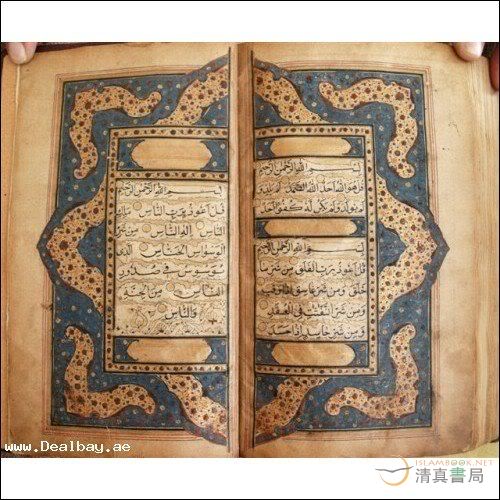 بسم الله الرحمن الرحيم
قل هو الله احد الله الصمد لم يلد و
لم يولد ولم يكن له كفوا احد
بسم الله الرحمن الرحيم
قل اعوذ برب الفلق من شر ما
خلق ومن شر غاسق اذا وقب
ومن شر النفثت في العقد
ومن شر حاسد اذا حسد
بسم الله الرحمن الرحيم
قل اعوذ برب الناس ملك
الناس اله الناس من شر
الوسواس الخناس الذي
يوسوس في صدور
الناس من الجنة
والناس
www.Dealbay.ae
ISLAMBOOK.NET
清真書局